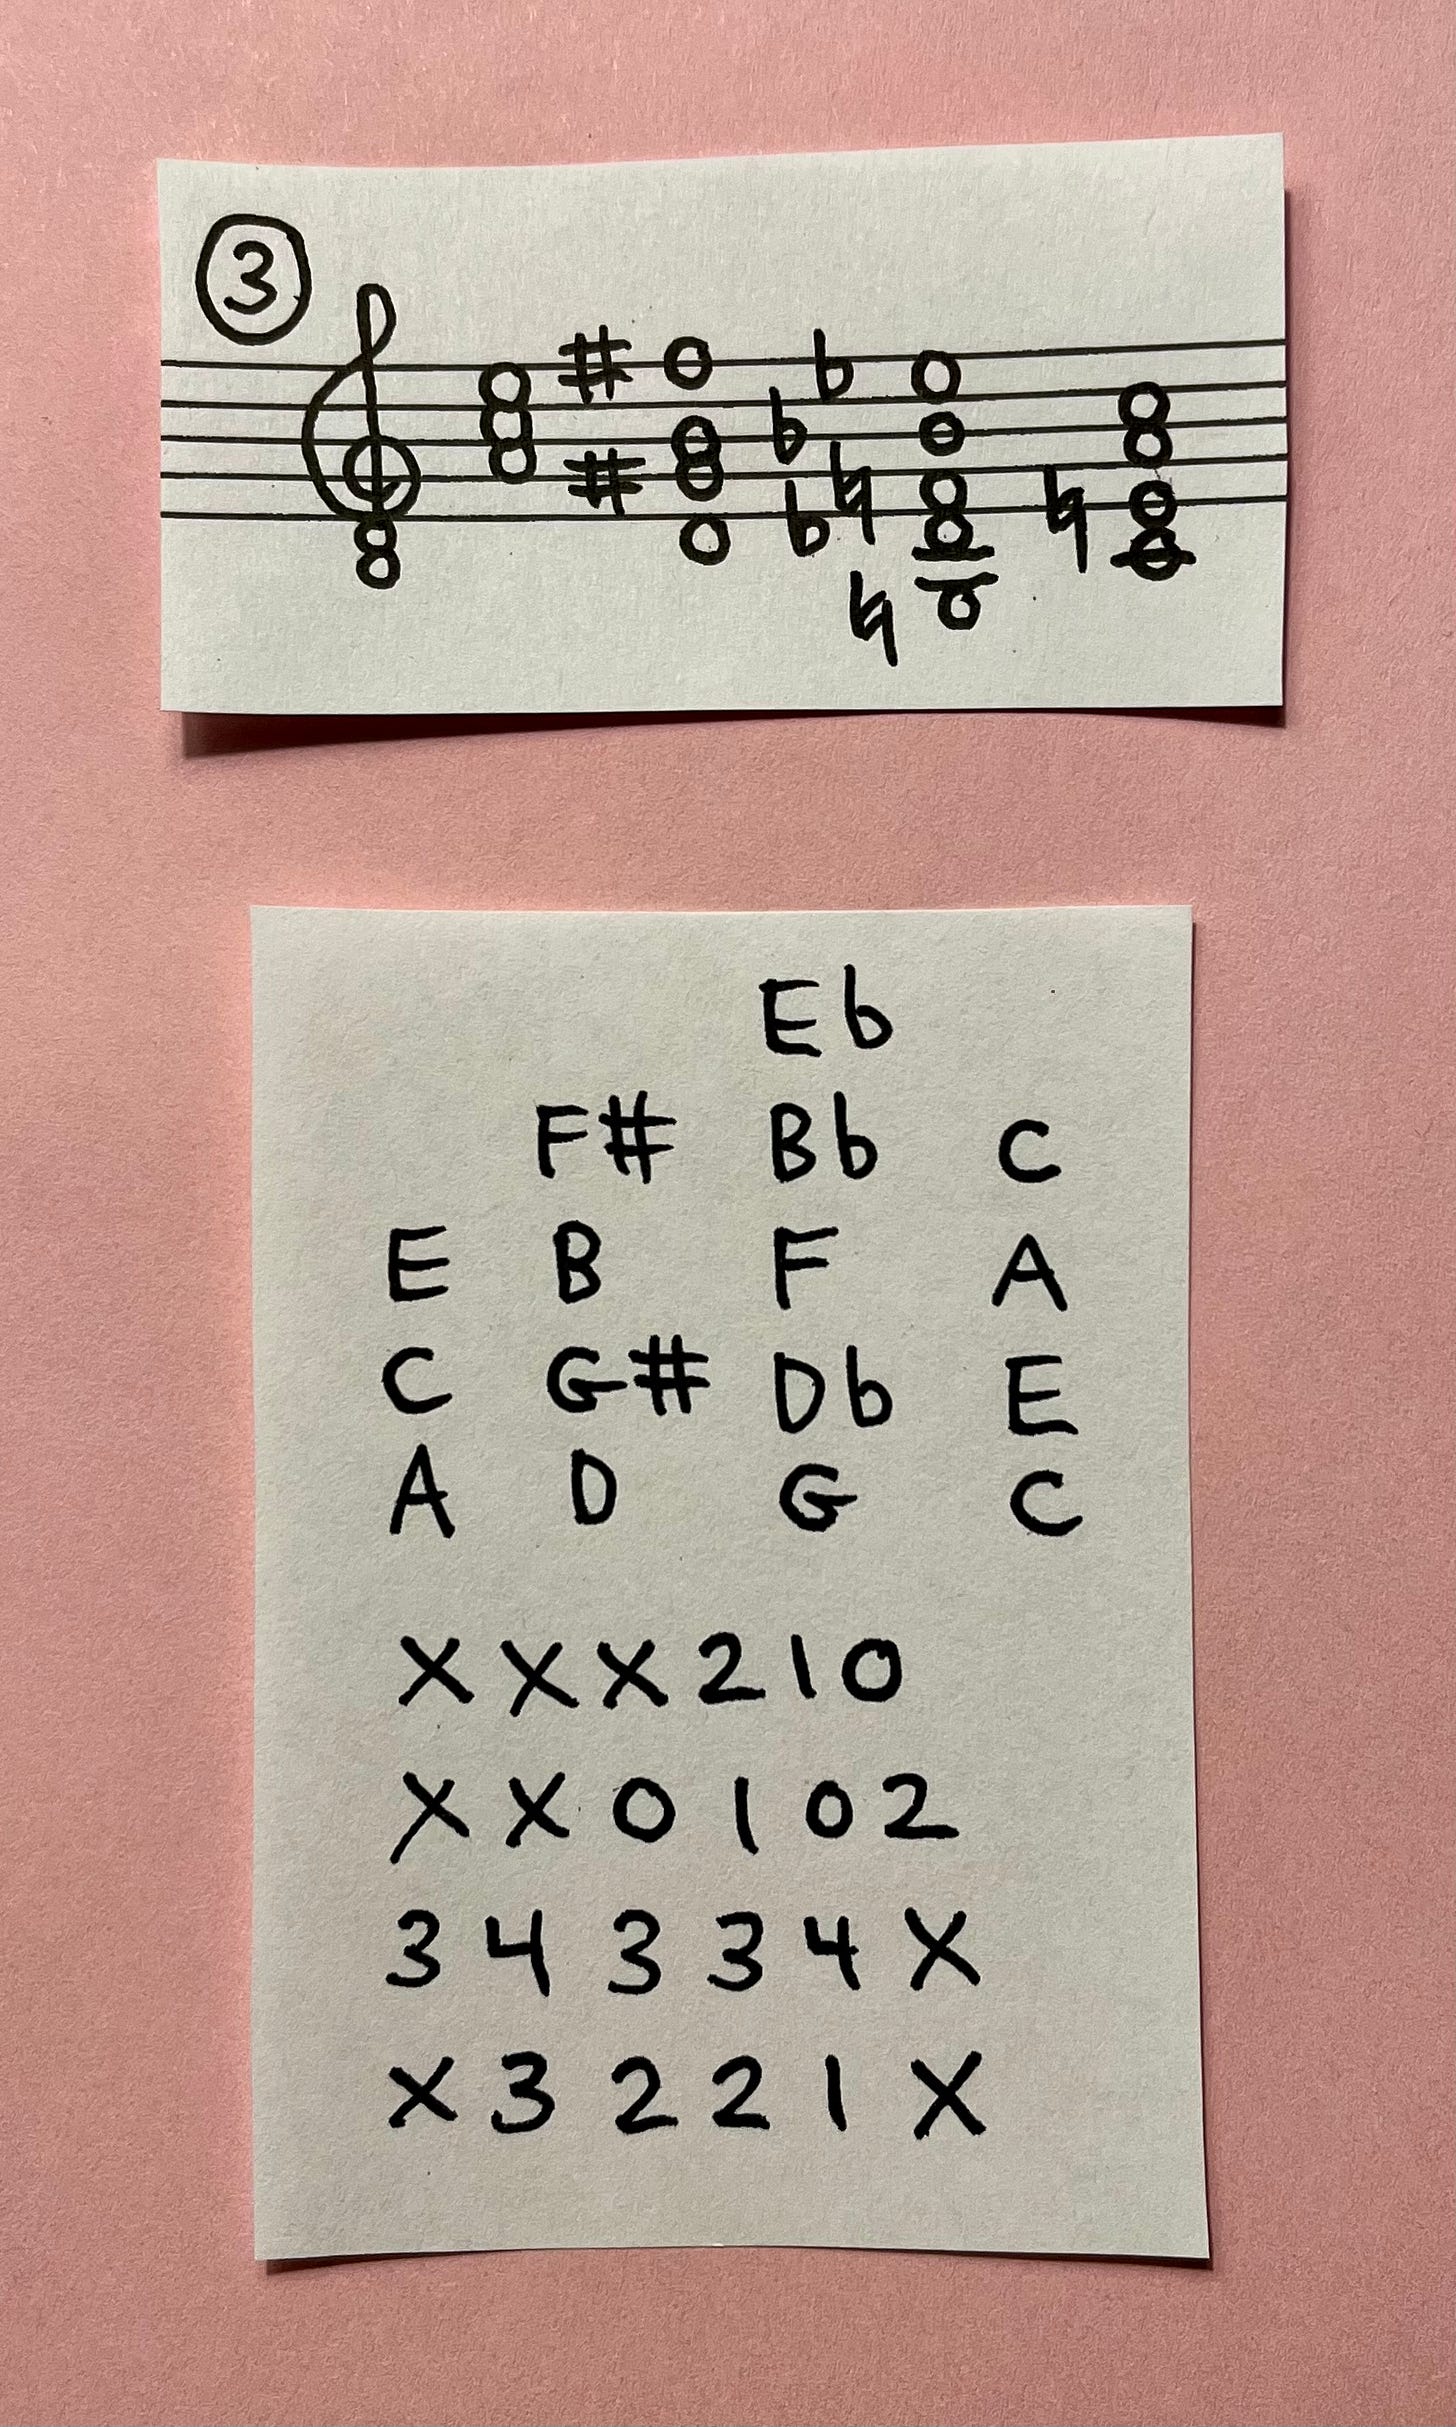 3
8
E♭
F# B♭ C
E B F A
C G# D♭ E
A D G C
X X X 2 1 0
X X 0 1 0 2
3 4 3 3 4 X
X 3 2 2 1 X